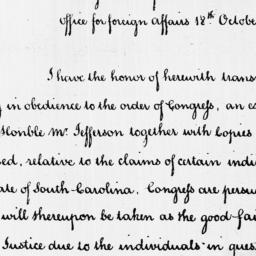 Office for foreign Affairs 18th. Octobe
I have the honor of herewith trans
in obedience to the order of Congress, an ex
Honble Mr. Jefferson together with Copies
ed, relative to the claims of certain indi
ate of South-Carolina. Congress are persu
will thereupon be taken as the good-fai
Justice due to the individuals in ques